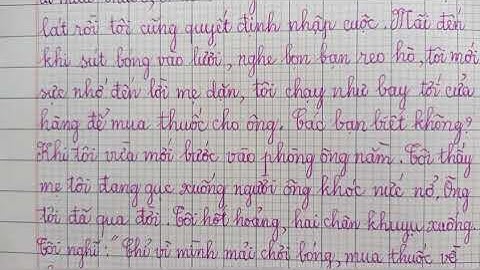 lát rồi tôi cũng quyết định nhập cuộc. Mãi đến
khi sút bóng vào lưới, nghe bọn bạn reo hò, tôi mới
sực nhớ đến lời mẹ dặn, tôi chạy như bay tới cửa
hàng để mua thuốc cho ông. Các bạn biết không?
Khi tôi vừa mới bước vào phòng ông nằm. Tôi thấy
mẹ tôi đang gục xuống người ông khóc nức nở. Ông
tôi đã qua đời. Tôi hốt hoảng, hai chân khuỵu xuống.
Tôi nghĩ: "Chỉ vì mình mải chơi bóng, mua thuốc về